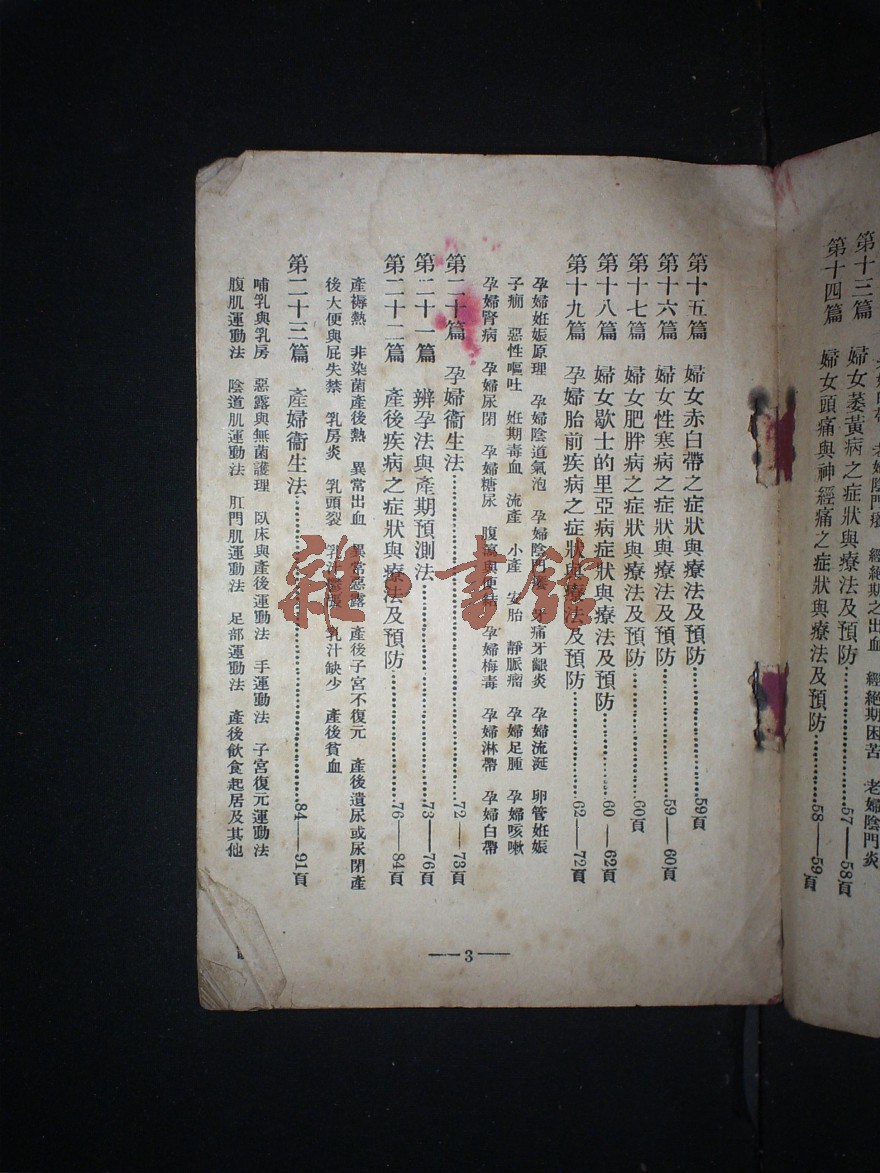 第十三篇
婦女萎黃病之症狀與療法及預防……57——58頁
經絕期之出血 經絕期困苦 老婦陰門炎
第十四篇 婦女頭痛與神經痛之症狀與療法及預防……58——59頁
第十五篇 婦女赤白帶之症狀與療法及預防……59頁
第十六篇 婦女性寒病之症狀與療法及預防……59——60頁
第十七篇 婦女肥胖病之症狀與療法及預防……60頁
第十八篇 婦女歇士的里亞病症狀與療法及預防……60——62頁
第十九篇 孕婦胎前疾病之症狀與療法及預防……62——72頁
孕婦姙娠原理 孕婦陰道氣泡 孕婦陰門癢 牙痛牙齦炎 孕婦流涎 卵管姙娠
子癇 惡性嘔吐 姙期毒血 流產 小產 安胎 靜脈瘤 孕婦足腫 孕婦咳嗽
孕婦腎病 孕婦尿閉 孕婦糖尿 腹瀉與便秘 孕婦梅毒 孕婦淋帶 孕婦白帶
第二十篇 孕婦衞生法……72——73頁
第二十一篇 辨孕法與產期預測法……73——76頁
第二十二篇 產後疾病之症狀與療法及預防……76——84頁
產褥熱 非染菌產後熱 異常出血 異常惡露 產後子宮不復元 產後遺尿或尿閉產
後大便與屁失禁 乳房炎 乳頭裂 乳汁 乳汁缺少 產後貧血
第二十三篇 產婦衞生法……84——91頁
哺乳與乳房 惡露與無菌護理 臥床與產後運動法 手運動法 子宮復元運動法
腹肌運動法 陰道肌運動法 肛門肌運動法 足部運動法 產後飲食起居及其他
——3——
雜·書館